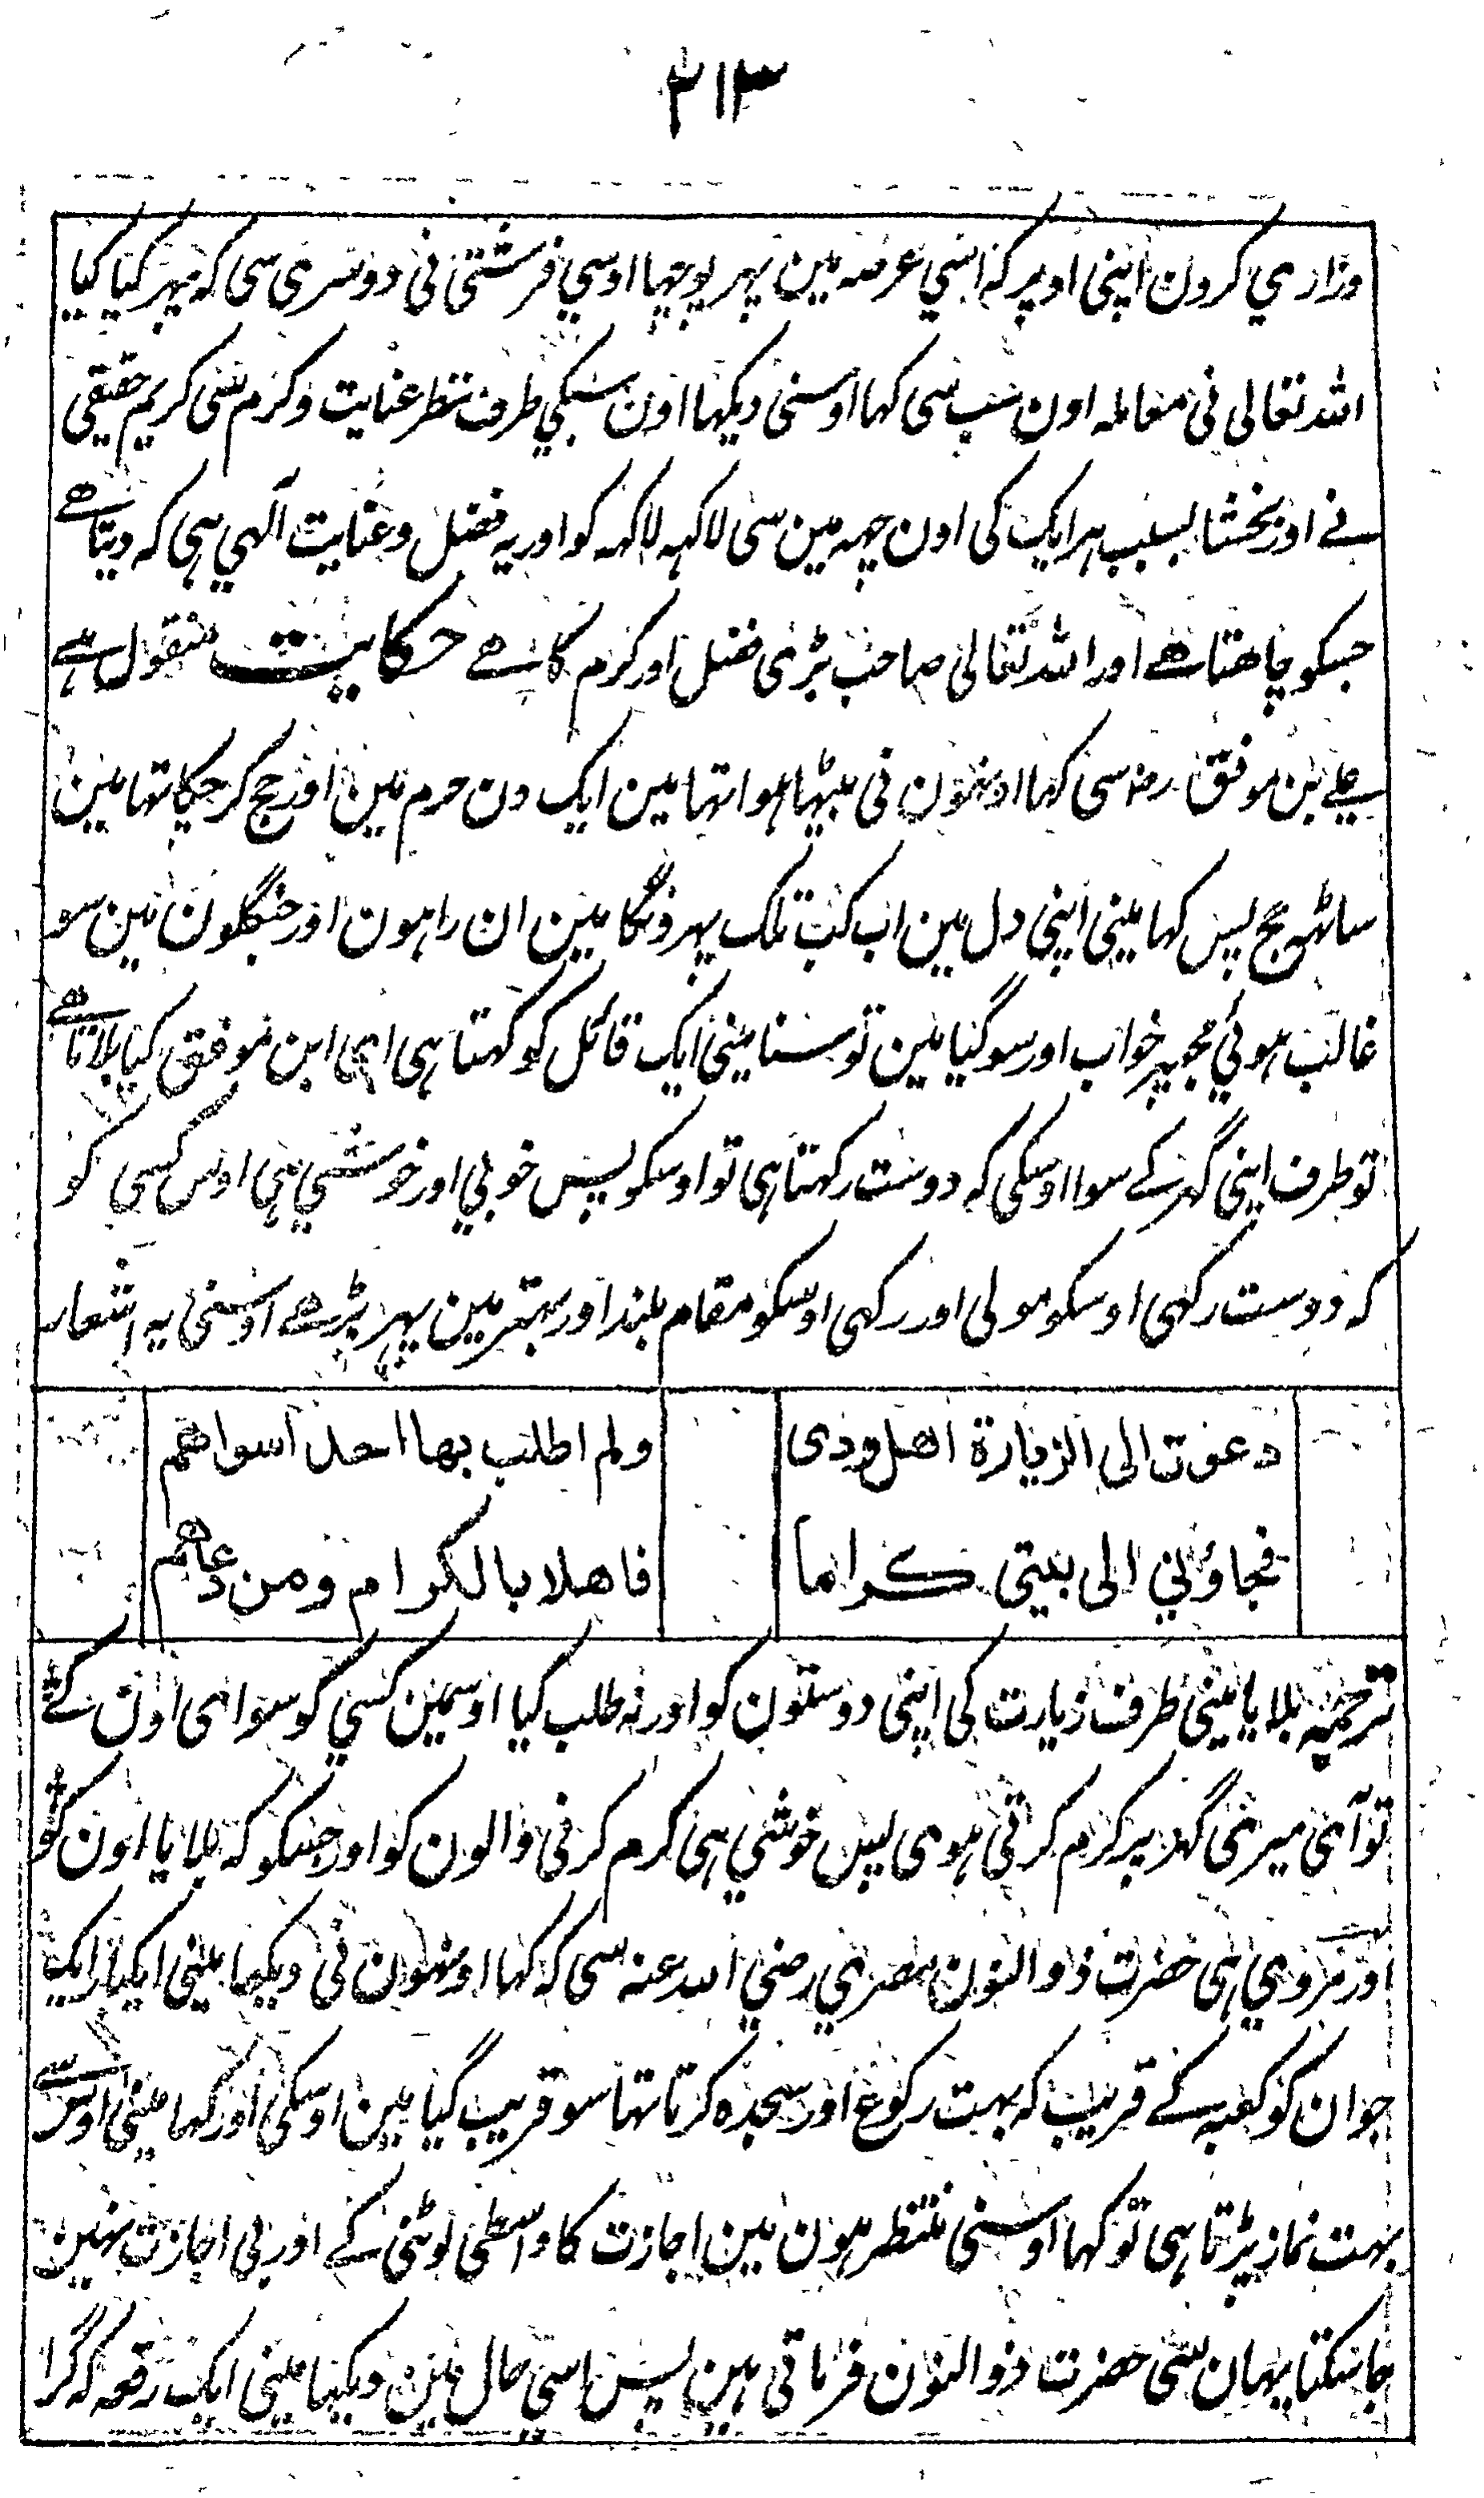 ۳۱۳
وزاری کرون اپنی اوپر کہ اسی عرصہ مین پہر پوچہا اوسی فرشتی نی دوسری سی کہ پہر کیا کیا
اللہ تعالی نی معاملہ اون سب سی کہا اوسنی دیکہا اون سبکی طرف نظر عنایت وکرم سی کریم حقیقی
نے اور بخشا بسبب ہر ایک کی اون چہہ مین سی لاکہہ لاکہہ کو اور یہ فضل وعنایت الٰہی ہی کہ دیتا ھے
جسکو چاھتا ھے اور اللہ تعالی صاحب بڑی فضل اور کرم کا ھے حکایت منقول ہے
علے بن موفق رضہ سی کہا اونہون نی بیٹہا ہوا تہا مین ایک دن حرم مین اور حج کر چکا تہا مین
ساٹہہ حج پس کہا مینی اپنی دل مین اب کب تلک پہرونگا مین ان راہون اور جنگلون مین سو
غالب ہوئی مجہپر خواب اور سو گیا مین تو سنا مینی ایک قائل کو کہتا ہی ای ابن موفق کیا بلاتا ھے
تو طرف اپنی گہر کے سوا اوسکی کہ دوست رکہتا ہی تو اوسکو پس خوبی اور خوشی ہی اوس کسی کو
کہ دوست رکہی اوسکو مولی اور رکہی اوسکو مقام بلند اور بہتر مین پہر پڑھے اوسنی یہ اشعار
دعوت الی الزیارة اهل ودی ولم اطلب بها احدا سواهم
فجاؤنی الی بیتی کراما فاهلا بالکرام ومن دعاهم
ترجمہ بلایا مینی طرف زیارت کی اپنی دوستون کو اور نہ طلب کیا اوسمین کسی کو سوای اون کے
تو آی میری گہر پر کرم کرتی ہوی پس خوشی ہی کرم کرنی والون کو اور جسکو کہ بلایا اون کو
اور مروی ہی حضرت ذوالنون مصری رضی اللہ عنہ سی کہ کہا اونہون نی دیکہا مینی ایکبار ایک
جوان کو کعبہ کے قریب کہ بہت رکوع اور سجدہ کرتا تہا سو قریب گیا مین اوسکی اور کہا مینی اوس سے
بہت نماز پڑتا ہی تو کہا اوسنی منتظر ہون مین اجازت کا واسطی لوٹنی کے اور بی اجازت نہین
جا سکتا یہان سی حضرت ذوالنون فرماتی ہین پس اسی حال مین دیکہا مینی ایک رقعہ کہ گرا